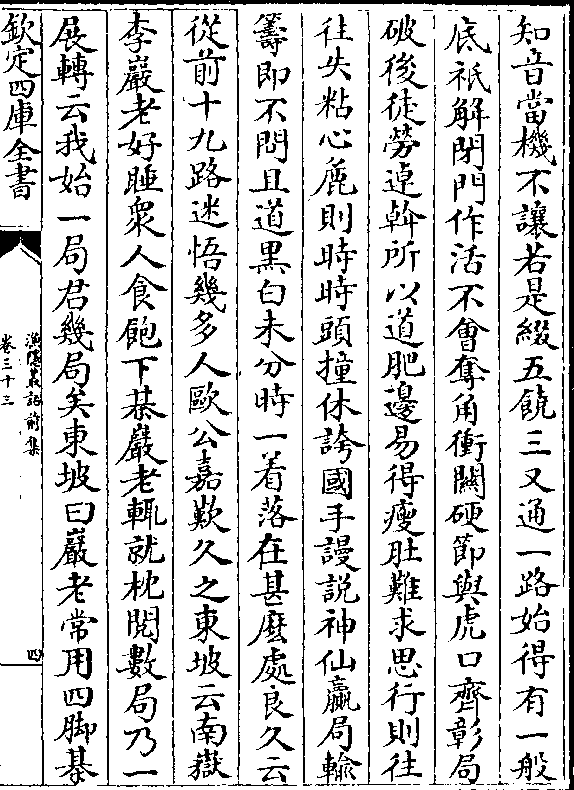 知音當機不讓若是綴五饒三又通一路始得有一般
底祇解閉門作活不㑹奪角衝關硬節與虎口齊彰局
破後徒勞逴斡所以道肥邊易得瘦肚難求思行則往
往失粘心麄則時時頭撞休誇國手謾説神仙贏局輸
籌即不問且道黒白未分時一着落在甚麽處良久云
從前十九路迷悟幾多人歐公嘉歎久之東坡云南嶽
李巖老好睡衆人食飽下棊巖老輒就枕閲數局乃一
展轉云我始一局君幾局矣東坡曰巖老常用四脚棊
欽定四庫全書
漁隱叢話前集
卷三十三
四